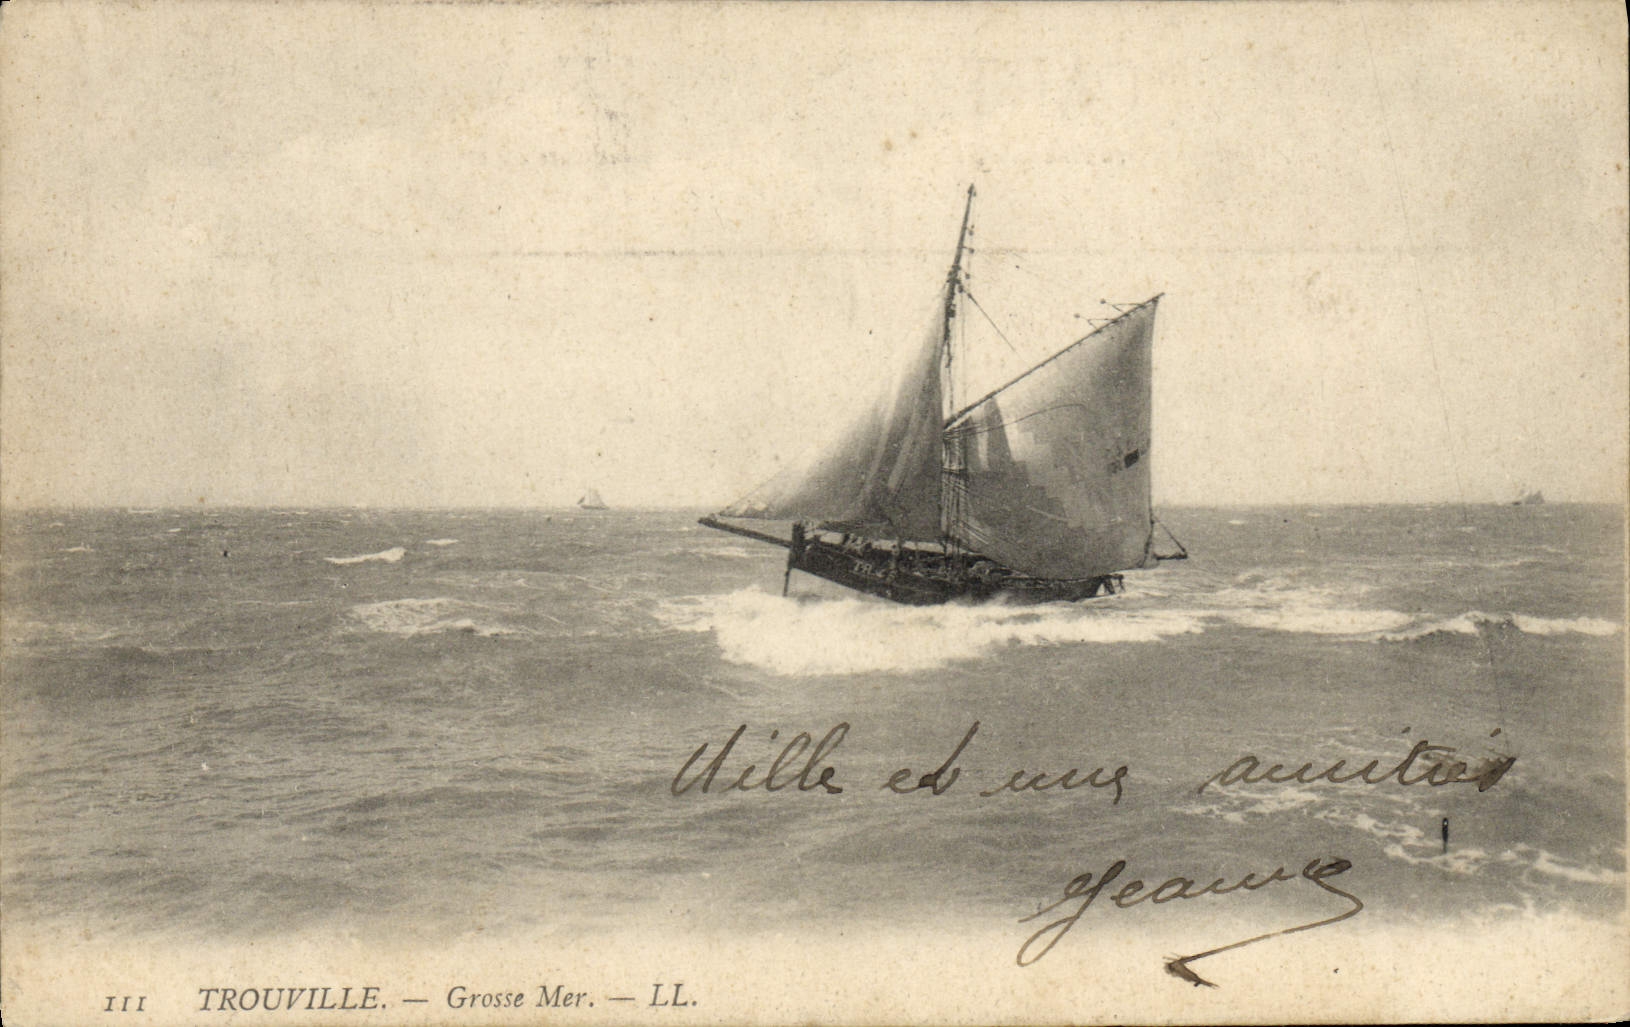 TR
Mille et une amitiés
Jeanne
111 TROUVILLE. — Grosse Mer. — LL.